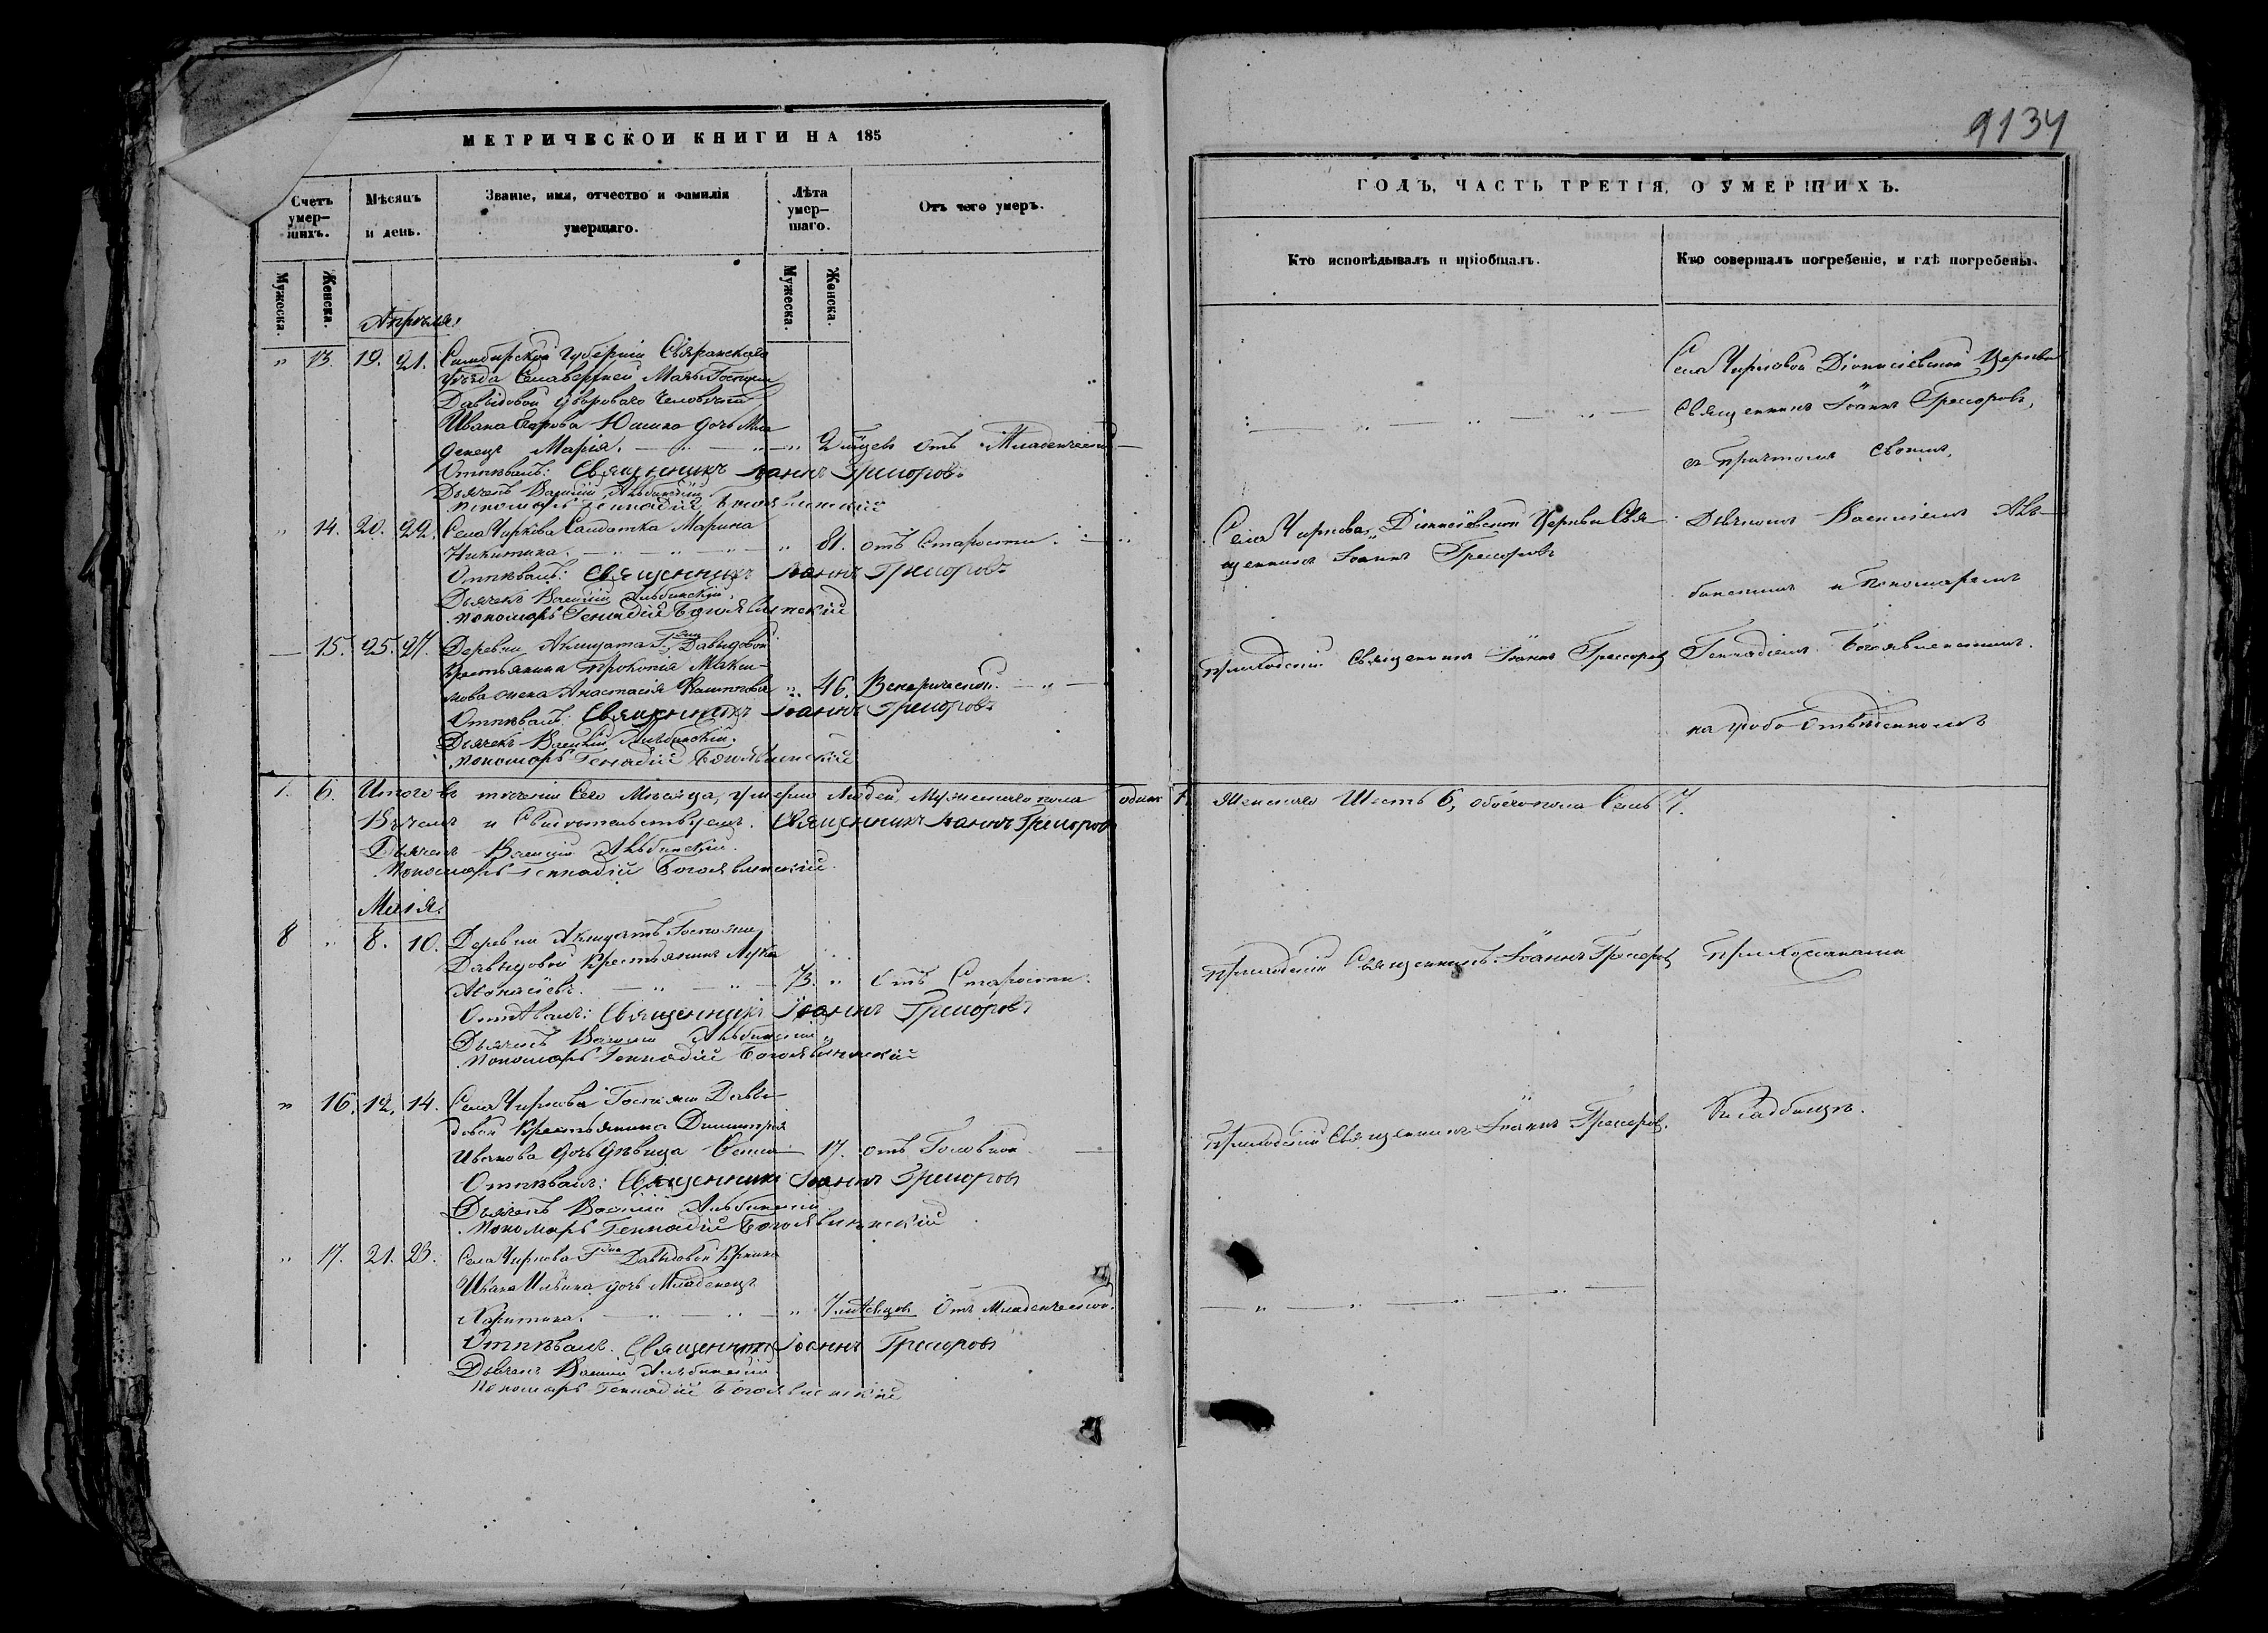 МЕТРИЧЕСКОЙ КНИГИ НА 185
Счетъ умерших. Мѣсяцъ и день. Званіе, имя, отчество и фамилія умершаго. Лѣта умершаго. Отъ чего умеръ.
Мужеска. Женска. Мужеска. Женска.
Апрѣля.
" 13. 19. 21. Симбирской Губерніи Сызранскаго
уѣзда
Давыдовой двороваго человѣка
Ивана дочь Мла
денецъ Марія. " отъ Младенческой
Отпѣвалъ: Священникъ Іоаннъ Григоровъ
Дьячекъ Василій Альбинскій
Пономарь Геннадій Богоявленскій
" 14. 20. 22. Села Чиркова Салдатка Марина
Никитина. " 81. отъ Старости.
Отпѣвалъ: Священникъ Іоаннъ Григоровъ
Дьячекъ Василій Альбинскій,
Пономарь Генадій Богоявленскій
15. 25. 27. Деревни Акшуата Гжи Давыдовой
Крестьянина Прокопія Макси-
мова жена Анастасія " 46. Венерической.
Отпѣвалъ: Священникъ Іоаннъ Григоровъ
Дьячекъ Василій Альбинскій.
Пономарь Генадій Богоявленскій
1. 6. Итого въ теченіи Сего Мѣсяца, умерло Людей, Мужескаго пола одинъ 1.
Въ чемъ и Свидѣтельствуемъ. Священникъ Іоаннъ Григоровъ
Дьячекъ Василій Альбинскій.
Пономарь Геннадій Богоявленскій.
Маія.
8 " 8. 10. Деревни Акшуатъ Госпожи
Давыдовой Крестьянинъ Лука
Аѳонасіевъ. 73. " Отъ Старости.
Отпѣвалъ: Священникъ Іоаннъ Григоровъ
Дьячекъ Василій Альбинскій
Пономарь Геннадій Богоявленскій
" 16. 12. 14. Села Чиркова Госпожи Давы-
довой Крестьянина Димитрія
Иванова дочь дѣвица 17. отъ Головной
Отпѣвалъ: Священникъ Іоаннъ Григоровъ
Дьячекъ Василій Альбинскій
Пономарь Геннадій Богоявленскій
" 17. 21. 23. Села Чиркова Гжи Давыдовой
Ивана Ильина дочь Младенецъ
Харитина. " 7 мѣсяцовъ Отъ Младенческой.
Отпѣвалъ. Священникъ Іоаннъ Григоровъ
Дьячекъ Василій Альбинскій
Пономарь Геннадій Богоявленскій
9134
ГОДЪ, ЧАСТЬ ТРЕТІЯ, О УМЕРШИХЪ.
Кто исповѣдывалъ и пріобщалъ. Кто совершалъ погребеніе, и гдѣ погребены.
Села Чирковой Діонисіевской Церкви
Священникъ Іоаннъ Григоровъ,
съ причтомъ своимъ,
Села Чиркова, Діонисіевской Церкви Свя-
щенникъ Іоаннъ Григоровъ
Дьячкомъ Василіемъ Аль-
бинскимъ и Пономаремъ
Приходскій Священникъ Іоаннъ Григоровъ
Геннадіемъ Богоявленскимъ.
на
Женскаго Шесть 6, обоего пола Семь 7.
Приходскій Священникъ Іоаннъ Григоровъ
Приходскій Священникъ Іоаннъ Григоровъ.
Кладбищѣ.